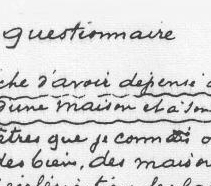 questionnaire
che d'avoir dépensé
d'une maison et à son
êtres que je connais o
des biens, des maison